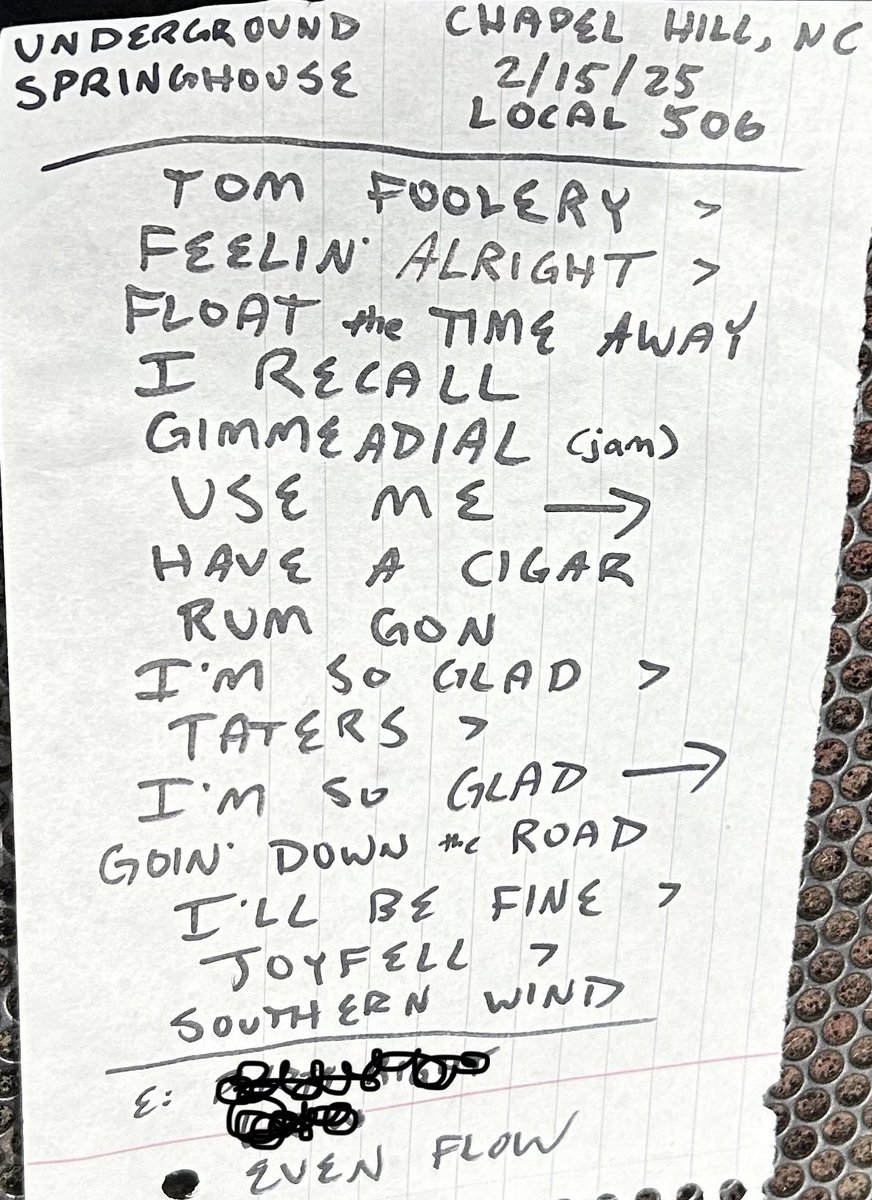 UNDERGROUND SPRINGHOUSE
CHAPEL HILL, NC
2/15/25
LOCAL 506
TOM FOOLERY >
FEELIN' ALRIGHT >
FLOAT the TIME AWAY
I RECALL
GIMMEADIAL (jam)
USE ME →
HAVE A CIGAR
RUM GON
I'M SO GLAD >
TATERS >
I'M SO GLAD →
GOIN' DOWN the ROAD
I'LL BE FINE >
JOYFELL >
SOUTHERN WIND
E:
EVEN FLOW